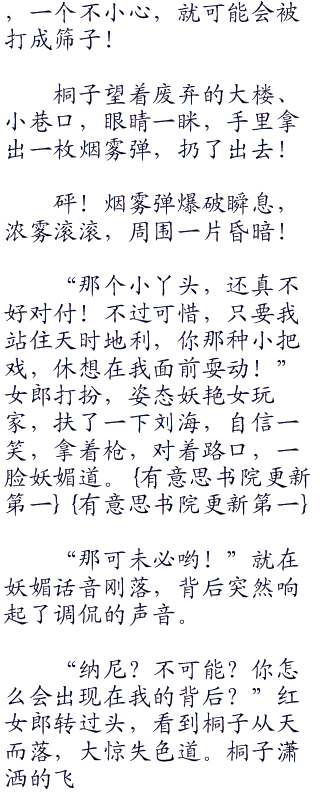 ，一个不小心，就可能会被
打成筛子！
桐子望着废弃的大楼、
小巷口，眼睛一眯，手里拿
出一枚烟雾弹，扔了出去！
砰！烟雾弹爆破瞬息，
浓雾滚滚，周围一片昏暗！
“那个小丫头，还真不
好对付！不过可惜，只要我
站住天时地利，你那种小把
戏，休想在我面前耍动！”
女郎打扮，姿态妖艳女玩
家，扶了一下刘海，自信一
笑，拿着枪，对着路口，一
脸妖媚道。{有意思书院更新
第一} {有意思书院更新第一}
“那可未必哟！”就在
妖媚话音刚落，背后突然响
起了调侃的声音。
“纳尼？不可能？你怎
么会出现在我的背后？”红
女郎转过头，看到桐子从天
而落，大惊失色道。桐子潇
洒的飞